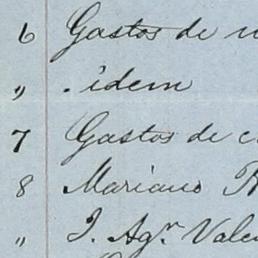 6 Gastos de
„ . idem
7 Gastos de
8 Mariano
„ J. Agr. Vale